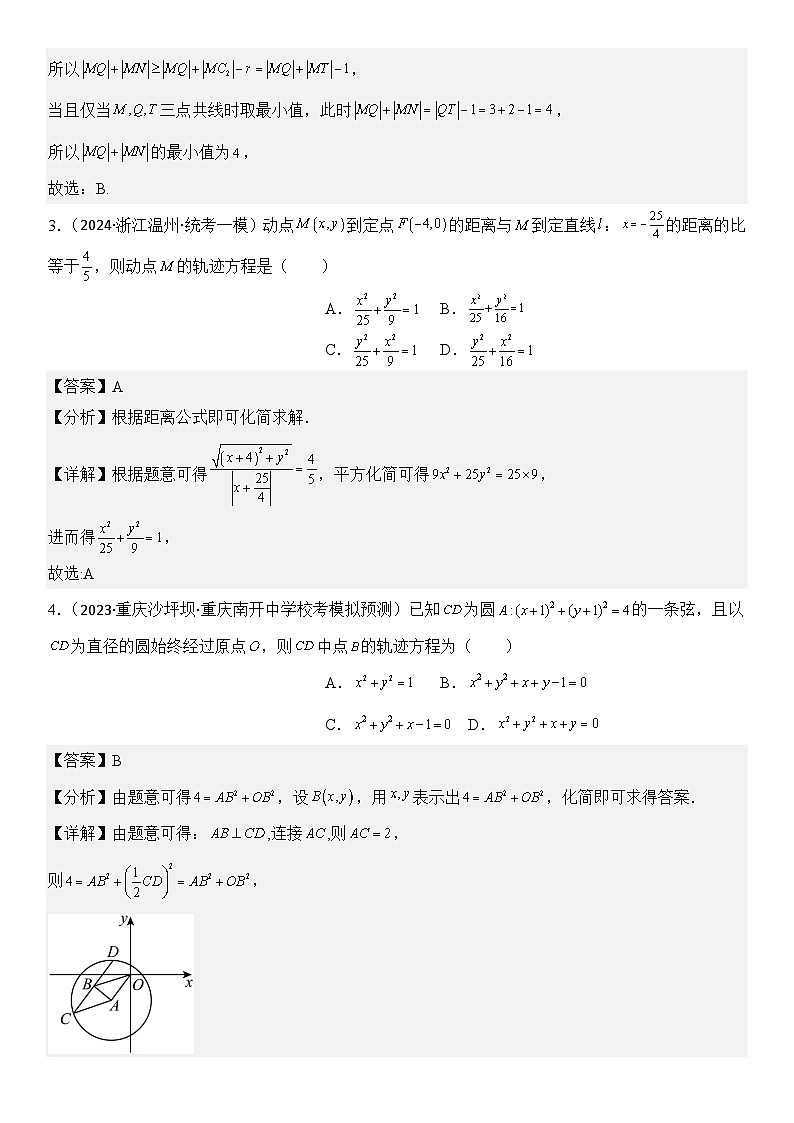 所以|MQ|+|MN|≥|MQ|+|MC₂|−r=|MQ|+|MT|−1，
当且仅当M,Q,T三点共线时取最小值，此时|MQ|+|MN|=|QT|−1=3+2−1=4，
所以|MQ|+|MN|的最小值为4，
故选：B.
3.（2024·浙江温州·统考一模）动点M(x,y)到定点F(−4,0)的距离与M到定直线l：x=−25/4的距离的比
等于4/5，则动点M的轨迹方程是（　　）
A．x²/25+y²/9=1　B．x²/25+y²/16=1
C．y²/25+x²/9=1　D．y²/25+x²/16=1
【答案】A
【分析】根据距离公式即可化简求解.
【详解】根据题意可得√((x+4)²+y²)/|x+25/4|=4/5，平方化简可得9x²+25y²=25×9，
进而得x²/25+y²/9=1，
故选:A
4.（2023·重庆沙坪坝·重庆南开中学校考模拟预测）已知CD为圆A:(x+1)²+(y+1)²=4的一条弦，且以
CD为直径的圆始终经过原点O，则CD中点B的轨迹方程为（　　）
A．x²+y²=1　B．x²+y²+x+y−1=0
C．x²+y²+x−1=0　D．x²+y²+x+y=0
【答案】B
【分析】由题意可得4=AB²+OB²，设B(x,y)，用x,y表示出4=AB²+OB²，化简即可求得答案.
【详解】由题意可得：AB⊥CD,连接AC,则AC=2，
则4=AB²+(1/2CD)²=AB²+OB²，
y
D
B
O
x
A
C